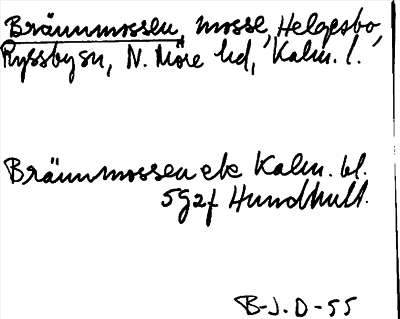 Brännmossen, mosse, Helgesbo,
Ryssby sn, N. Möre hd, Kalm. l.
Brännmossen ek Kalm. bl.
5G2f Hundhult.
B-J. D-55